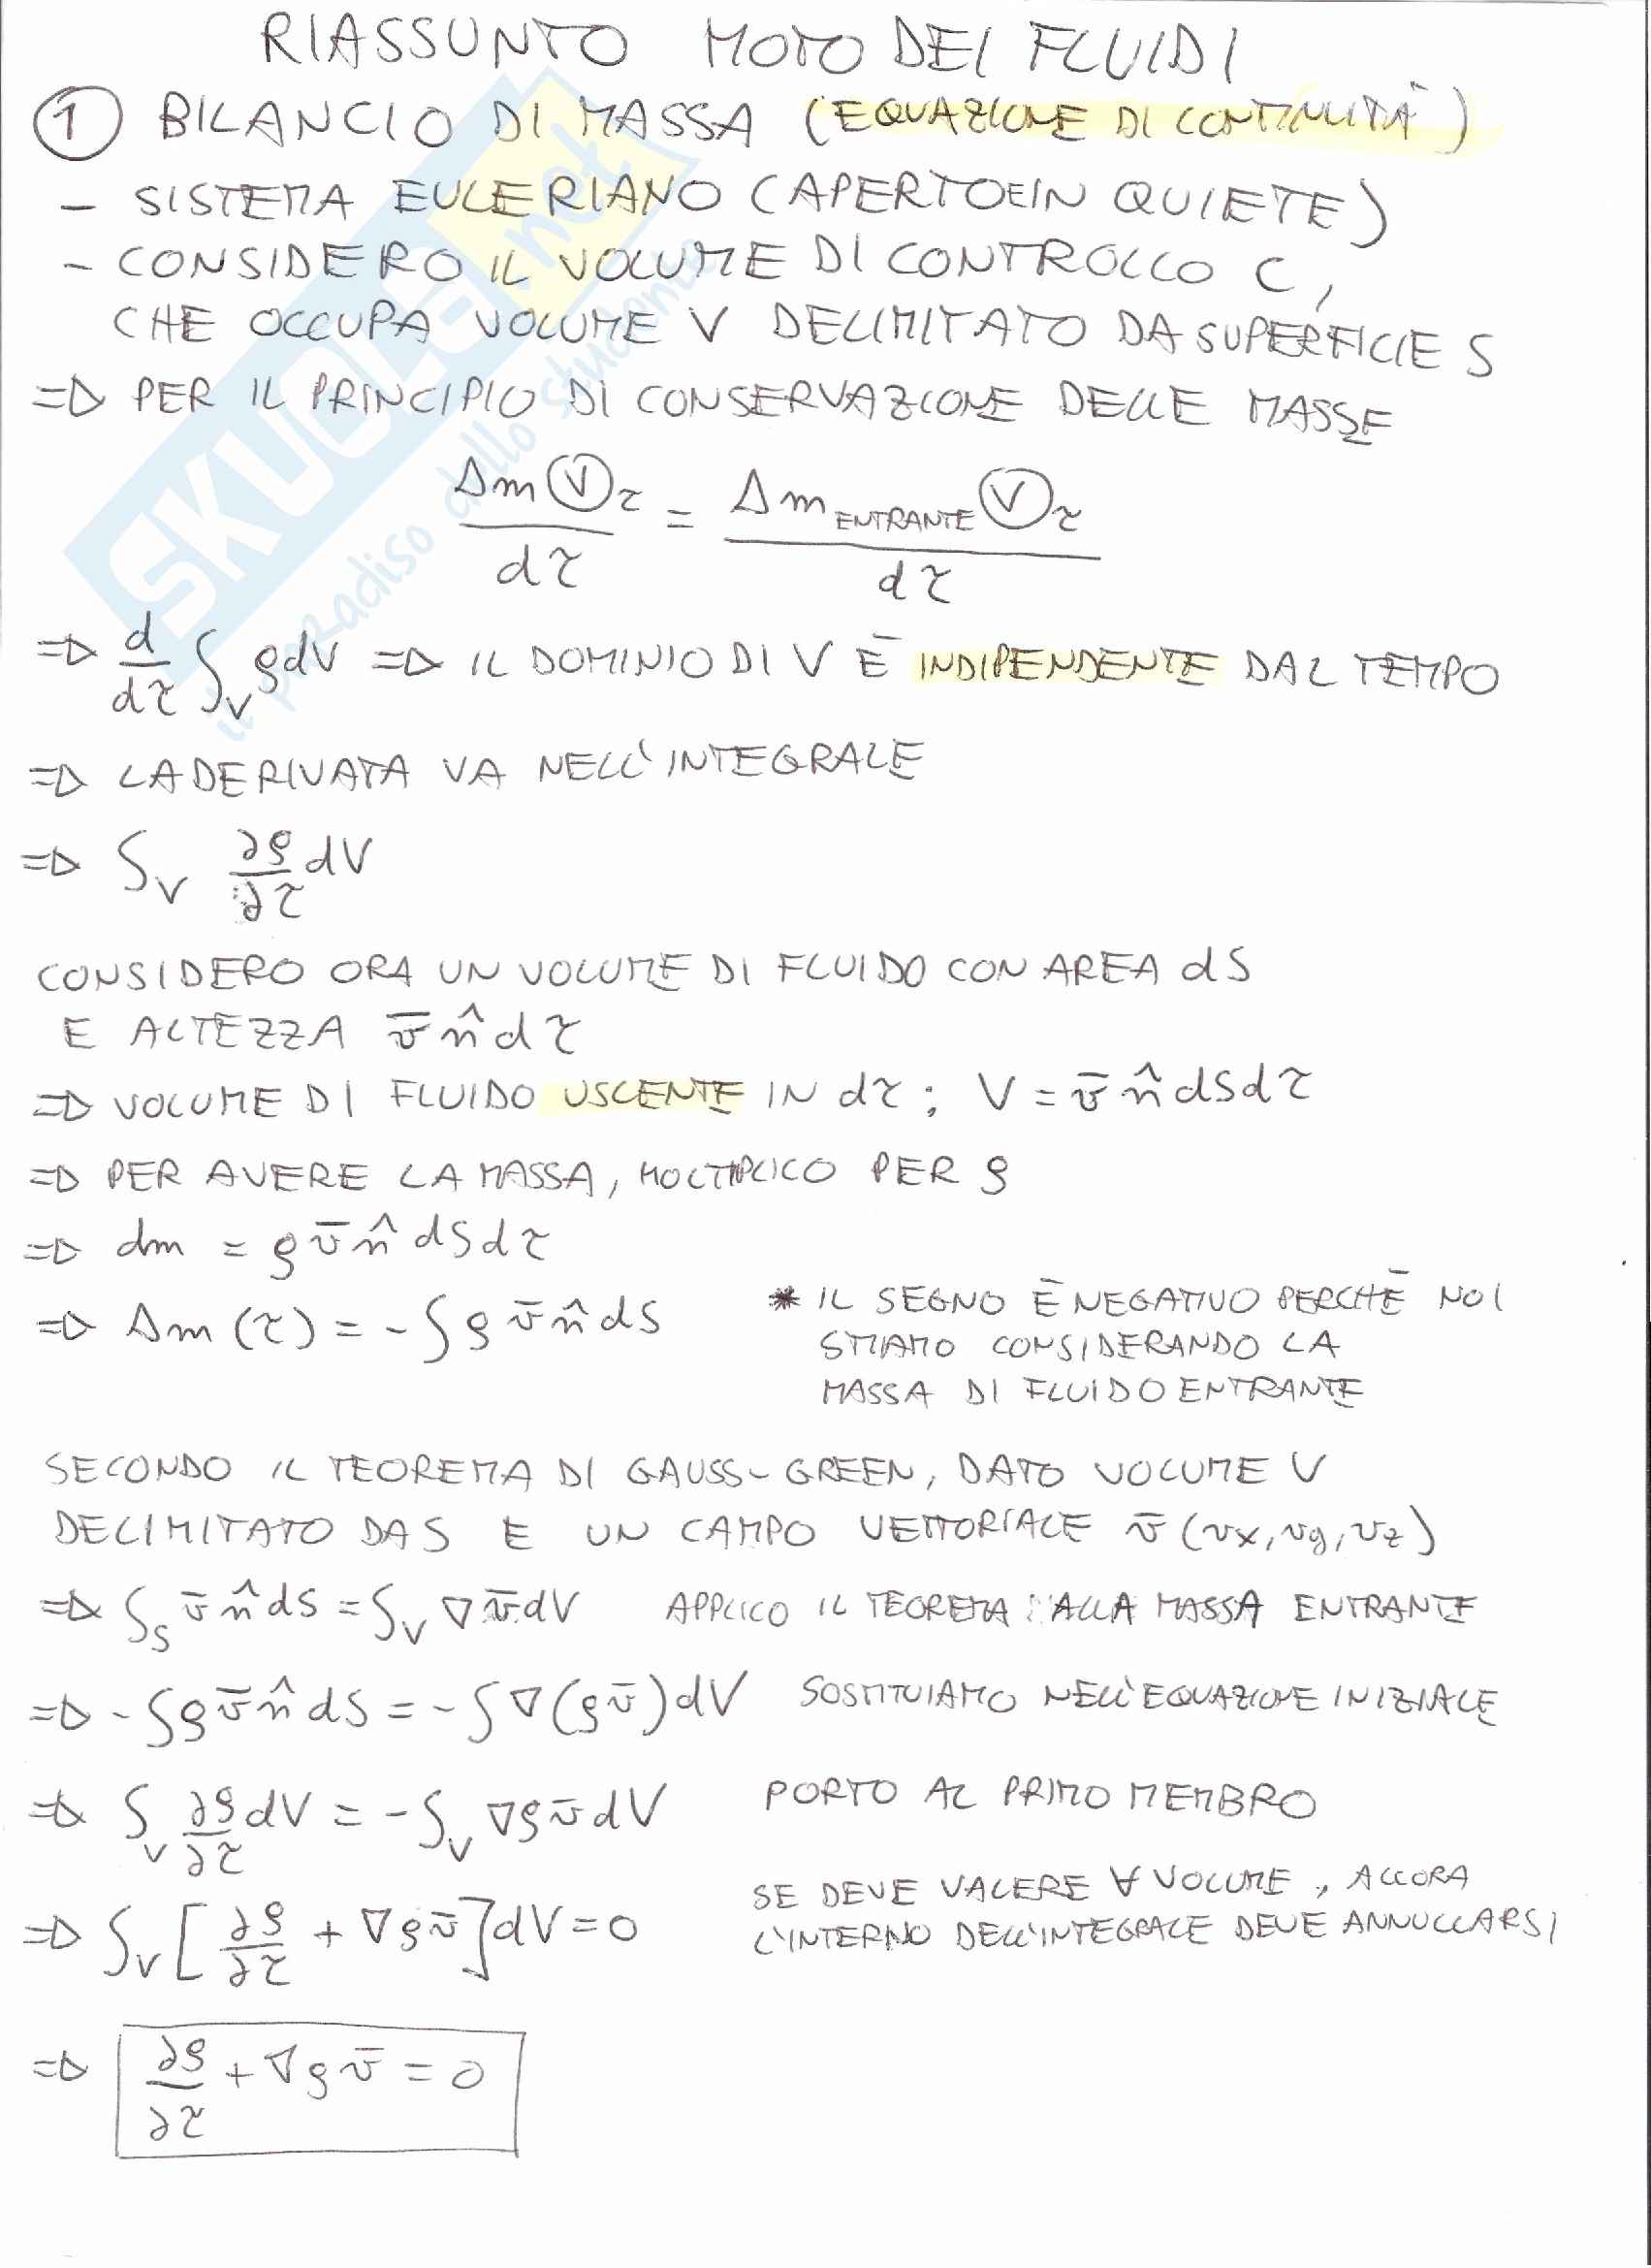 RIASSUNTO MOTO DEI FLUIDI
① BILANCIO DI MASSA (EQUAZIONE DI CONTINUITÀ)
- SISTEMA EULERIANO (APERTO E IN QUIETE)
- CONSIDERO IL VOLUME DI CONTROLLO C,
CHE OCCUPA VOLUME V DELIMITATO DA SUPERFICIE S
=> PER IL PRINCIPIO DI CONSERVAZIONE DELLE MASSE
Δm Ⓥτ / dτ = Δm ENTRANTE Ⓥτ / dτ
=> d/dτ ∫V ρdV => IL DOMINIO DI V È INDIPENDENTE DAL TEMPO
=> LA DERIVATA VA NELL'INTEGRALE
=> ∫V ∂ρ/∂τ dV
CONSIDERO ORA UN VOLUME DI FLUIDO CON AREA dS
E ALTEZZA v̄ n̂ dτ
=> VOLUME DI FLUIDO USCENTE IN dτ; V = v̄ n̂ dS dτ
=> PER AVERE LA MASSA, MOLTIPLICO PER ρ
=> dm = ρ v̄ n̂ dS dτ
=> Δm (τ) = - ∫ ρ v̄ n̂ dS
* IL SEGNO È NEGATIVO PERCHÈ NOI
STIAMO CONSIDERANDO LA
MASSA DI FLUIDO ENTRANTE
SECONDO IL TEOREMA DI GAUSS-GREEN, DATO VOLUME V
DELIMITATO DA S E UN CAMPO VETTORIALE v̄ (vx, vy, vz)
=> ∫S v̄ n̂ dS = ∫V ∇ v̄ dV APPLICO IL TEOREMA ALLA MASSA ENTRANTE
=> - ∫ ρ v̄ n̂ dS = - ∫ ∇ (ρ v̄) dV SOSTITUIAMO NELL'EQUAZIONE INIZIALE
=> ∫V ∂ρ/∂τ dV = - ∫V ∇ρ v̄ dV PORTO AL PRIMO MEMBRO
=> ∫V [∂ρ/∂τ + ∇ρ v̄] dV = 0
SE DEVE VALERE ∀ VOLUME, ALLORA
L'INTERNO DELL'INTEGRALE DEVE ANNULLARSI
=> ∂ρ/∂τ + ∇ρ v̄ = 0
SKUOLA.net
il paradiso dello studente